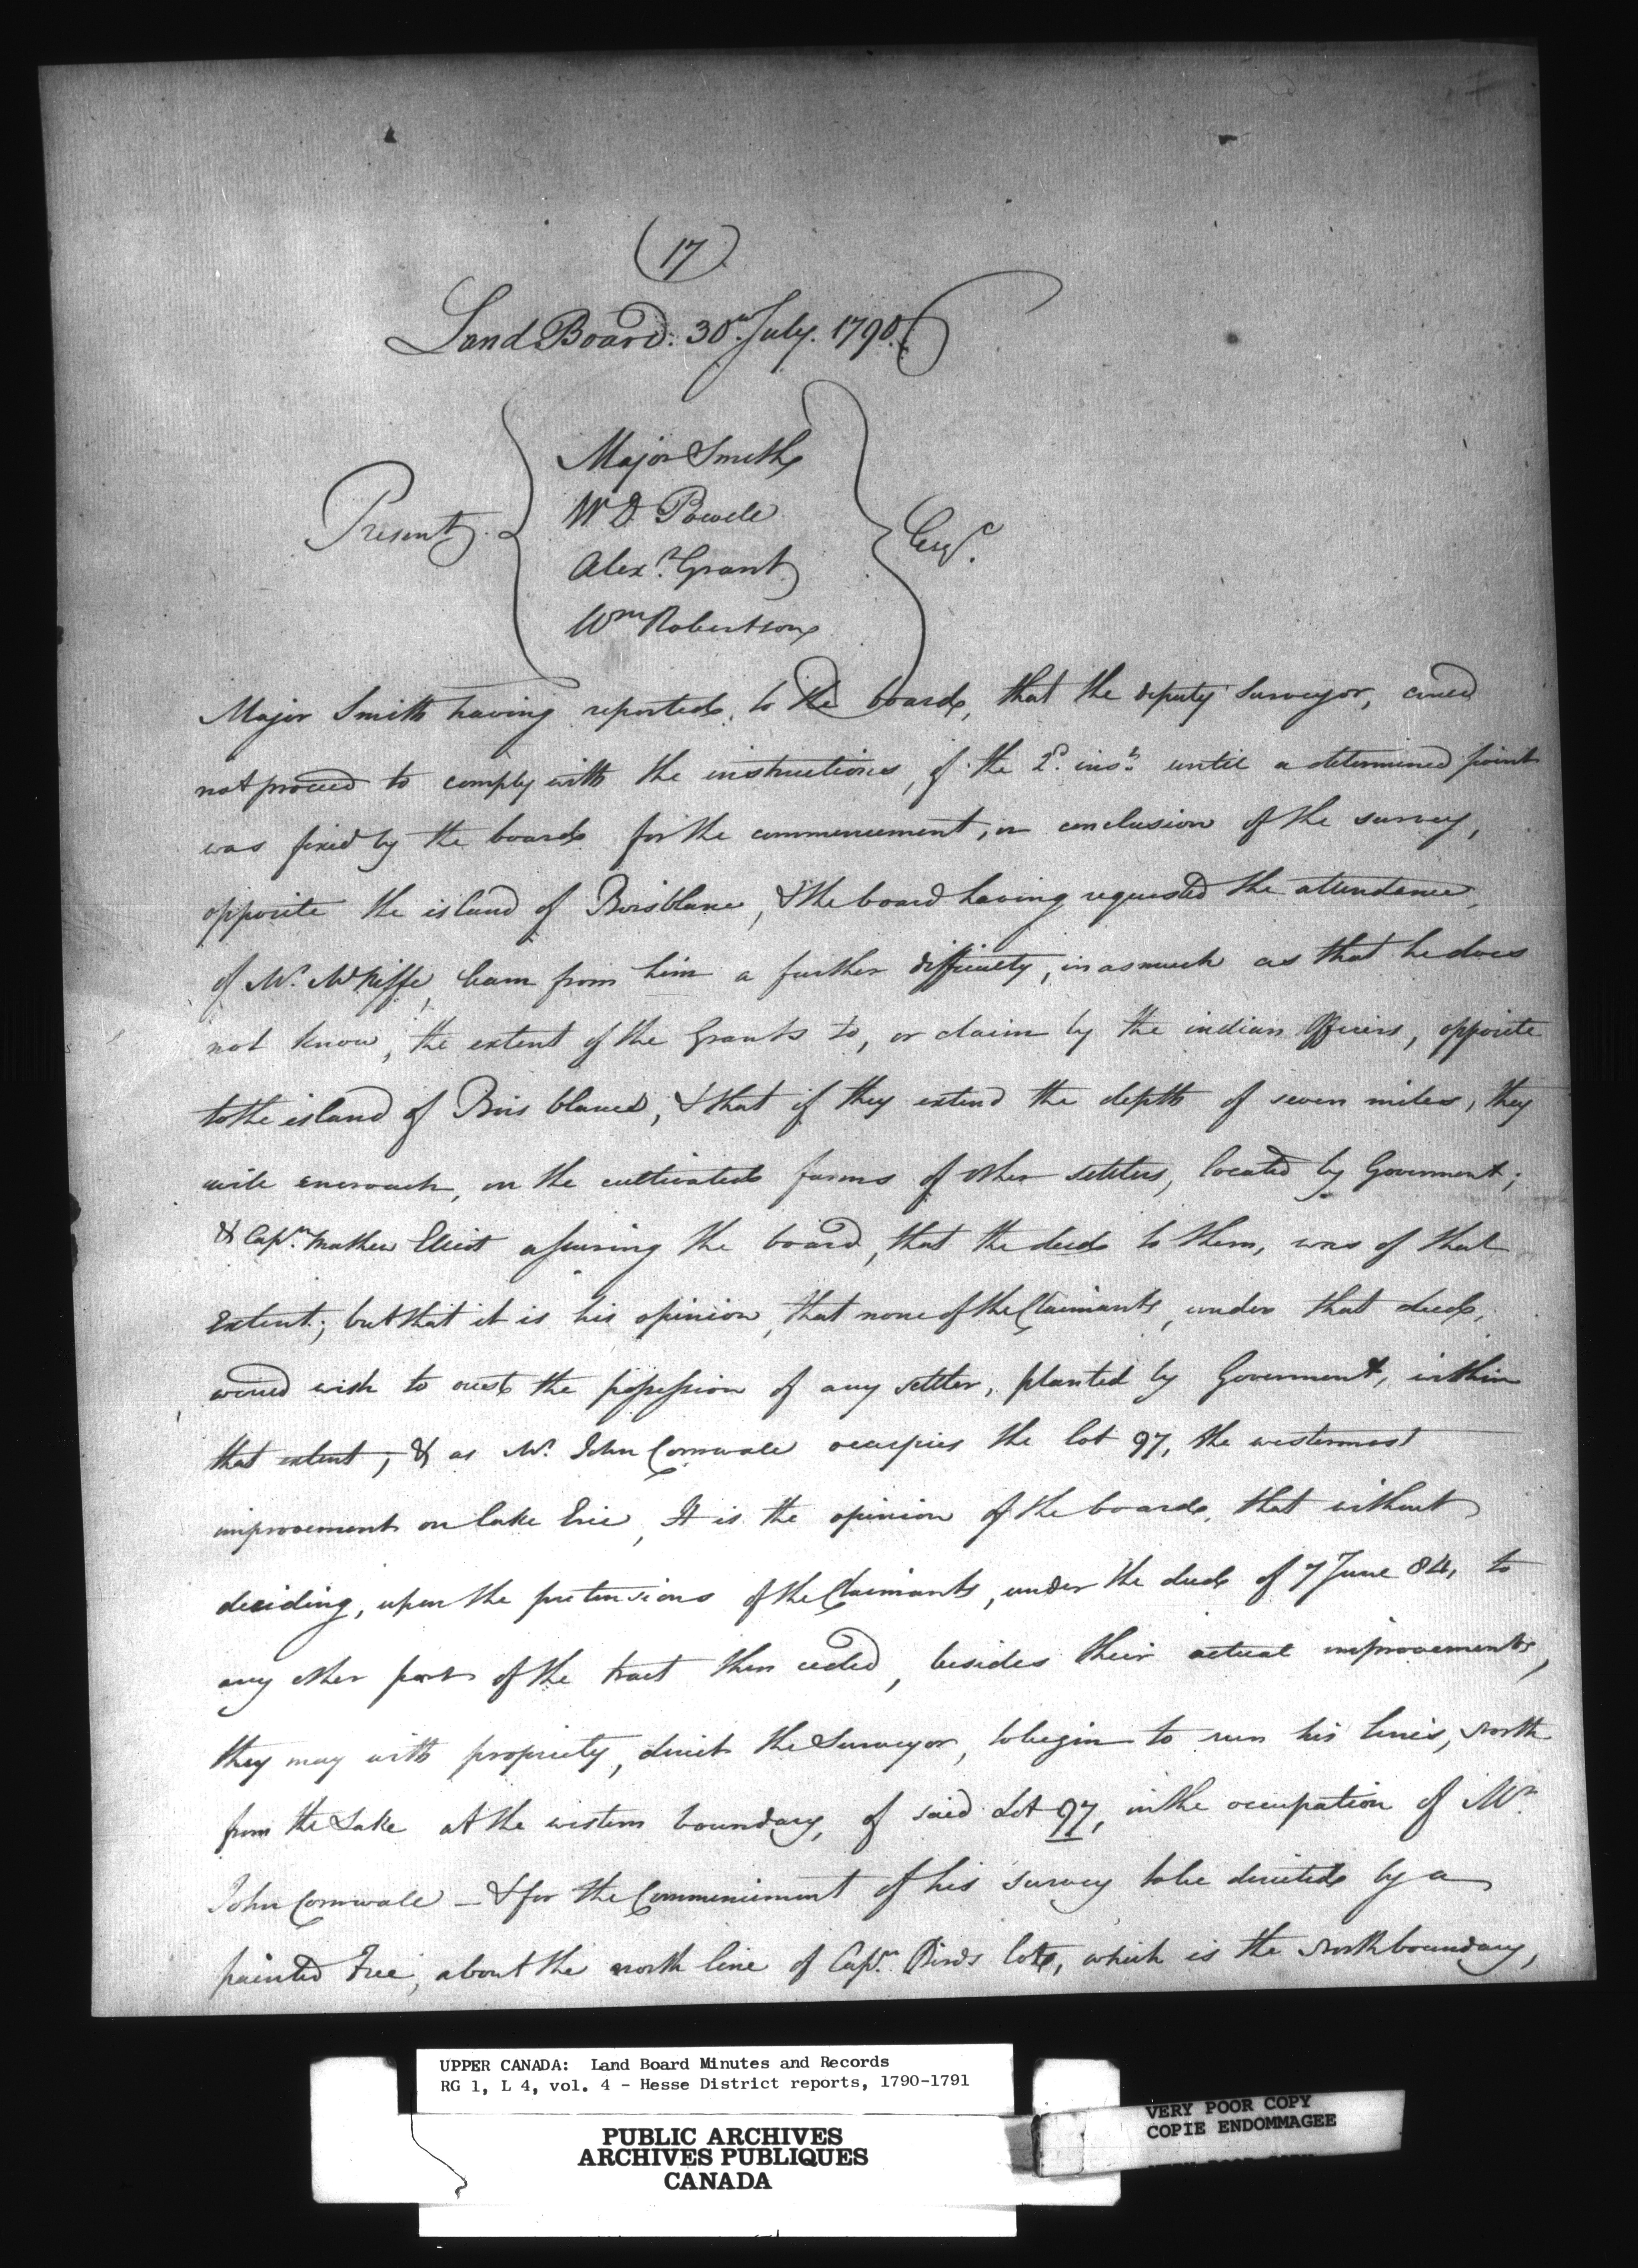 (17)
Land Board. 30th July. 1790.
Major Smith
W D Powell
Present. Esqrs.
Alexr. Grant
Wm Robertson
Major Smith having reported, to the board, that the deputy Surveyor, could
not proceed to comply with the instructions, of the 2d. inst. until a determined point
was fixed by the board for the commencement, or conclusion of the survey,
opposite the island of Boisblanc, & the board having requested the attendance,
of Mr. McNiffe, learn from him a further difficulty, in asmuch as that he does
not know, the extent of the Grants to, or claim by the indian Officers, opposite
to the island of Bois blanc, & that if they extend the depth of seven miles, they
will encroach, on the cultivated farms of other settlers, located by Goverment;
& Capn. Mathew Elliot assuring the board, that the deed to them, was of that
Extent; but that it is his opinion, that none of the Claimants, under that deed,
would wish to oust the possession of any settler, planted by Goverment, within
that extent; & as Mr. John Cornwall occupies the lot 97, the westermost
improvement on lake Erie, It is the opinion of the board, that without
deciding, upon the pretensions of the Claimants, under the deed of 7 June 84, to
any other part of the tract then ceded, besides their actual improvements,
they may with propriety, direct the Surveyor, to begin to run his lines, North
from the Lake at the western boundary, of said Lot 97, in the occupation of Mr.
John Cornwall - & for the Commencement of his survey to be directed by a
painted Tree, about the north line of Capn. Birds lots, which is the North boundary,
UPPER CANADA: Land Board Minutes and Records
RG 1, L 4, vol. 4 - Hesse District reports, 1790-1791
PUBLIC ARCHIVES
ARCHIVES PUBLIQUES
CANADA
VERY POOR COPY
COPIE ENDOMMAGEE